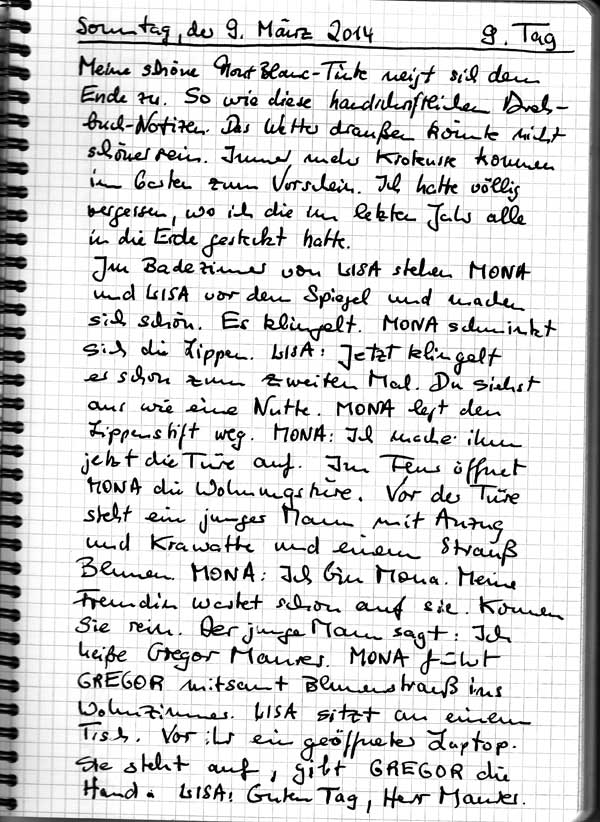 Sonntag, der 9. März 2014 9. Tag
Meine schöne MontBlanc-Tinte neigt sich dem
Ende zu. So wie diese handschriftlichen Dreh-
buch-Notizen. Das Wetter draußen könnte nicht
schöner sein. Immer mehr Krokusse kommen
im Garten zum Vorschein. Ich hatte völlig
vergessen, wo ich die im letzten Jahr alle
in die Erde gesteckt hatte.
Im Badezimmer von LISA stehen MONA
und LISA vor dem Spiegel und machen
sich schön. Es klingelt. MONA schminkt
sich die Lippen. LISA: Jetzt klingelt
es schon zum zweiten Mal. Du siehst
aus wie eine Nutte. MONA legt den
Lippenstift weg. MONA: Ich mache ihm
jetzt die Türe auf. Im öffnet
MONA die Wohnungstüre. Vor der Türe
steht ein junger Mann mit Anzug
und Krawatte und einem Strauß
Blumen. MONA: Ich bin Mona. Meine
Freundin wartet schon auf sie. Kommen
Sie rein. Der junge Mann sagt: Ich
heiße Gregor Maurer. MONA führt
GREGOR mitsamt Blumenstrauß ins
Wohnzimmer. LISA sitzt an einem
Tisch. Vor ihr ein geöffneter Laptop.
Sie steht auf, gibt GREGOR die
Hand. LISA: Guten Tag, Herr Maurer.